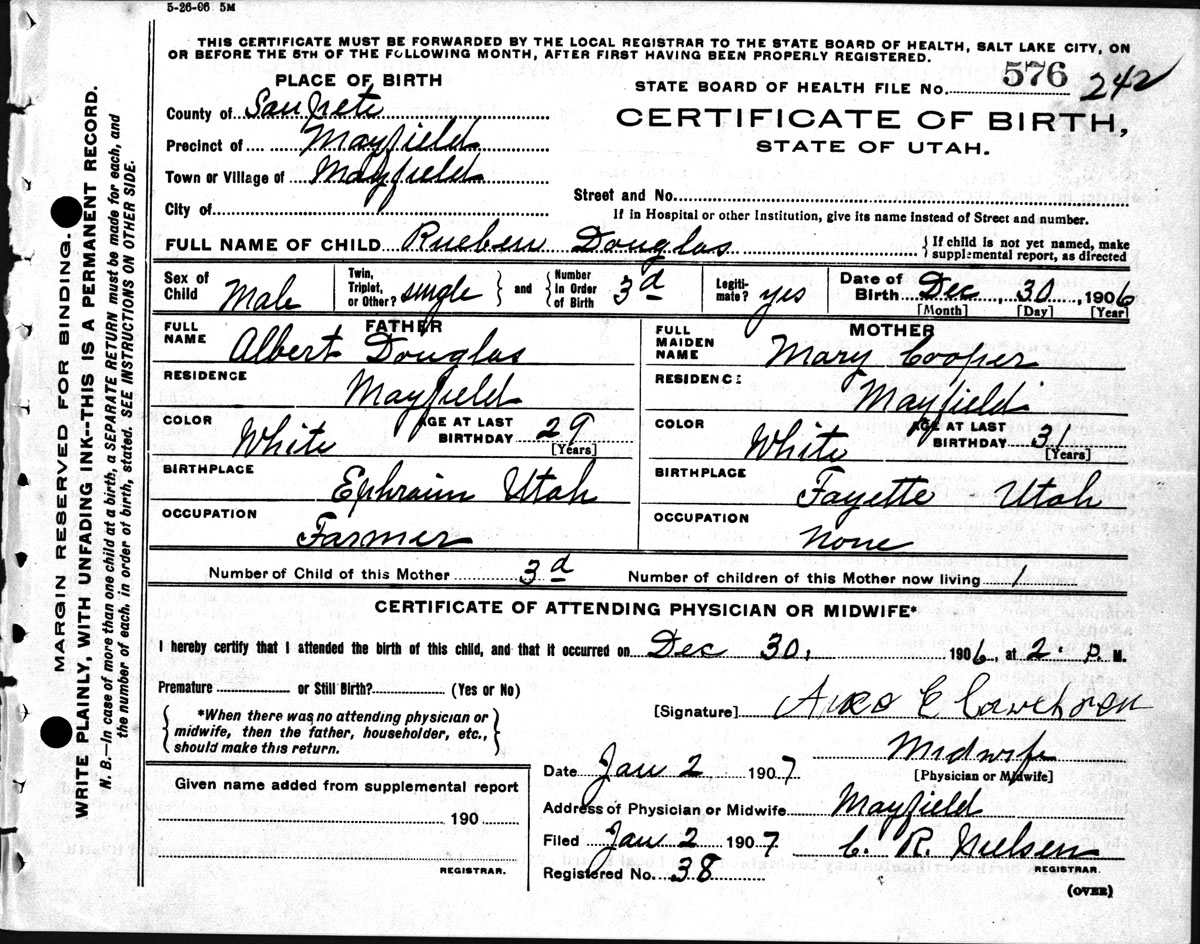 5-26-06 5M
THIS CERTIFICATE MUST BE FORWARDED BY THE LOCAL REGISTRAR TO THE STATE BOARD OF HEALTH, SALT LAKE CITY, ON
OR BEFORE THE 5TH OF THE FOLLOWING MONTH, AFTER FIRST HAVING BEEN PROPERLY REGISTERED.
PLACE OF BIRTH
STATE BOARD OF HEALTH FILE No. 576 242
County of SanPete
CERTIFICATE OF BIRTH,
STATE OF UTAH.
Precinct of Mayfield
Town or Village of Mayfield
Street and No.
City of
If in Hospital or other Institution, give its name instead of Street and number.
FULL NAME OF CHILD Rueben Douglas { If child is not yet named, make supplemental report, as directed
Sex of Child Male Twin, Triplet, or Other? single } and { Number In Order of Birth 3d Legiti-mate? yes Date of Birth Dec, 30, 1906
[Month] [Day] [Year]
FATHER
FULL NAME Albert Douglas
RESIDENCE Mayfield
COLOR White AGE AT LAST BIRTHDAY 29 [Years]
BIRTHPLACE Ephraim Utah
OCCUPATION Farmer
MOTHER
FULL MAIDEN NAME Mary Cooper
RESIDENCE Mayfield
COLOR White AGE AT LAST BIRTHDAY 31 [Years]
BIRTHPLACE Fayette Utah
OCCUPATION None
Number of Child of this Mother 3d Number of children of this Mother now living 1
CERTIFICATE OF ATTENDING PHYSICIAN OR MIDWIFE*
I hereby certify that I attended the birth of this child, and that it occurred on Dec 30, 1906, at 2. P. M.
Premature or Still Birth? (Yes or No)
{ *When there was no attending physician or midwife, then the father, householder, etc., should make this return. }
[Signature]
Midwife
[Physician or Midwife]
Date Jan 2 1907
Address of Physician or Midwife Mayfield
Filed Jan 2 1907 C. R. Nielsen
REGISTRAR.
Registered No. 38
(OVER)
Given name added from supplemental report
190
REGISTRAR.
MARGIN RESERVED FOR BINDING.
WRITE PLAINLY, WITH UNFADING INK--THIS IS A PERMANENT RECORD.
N. B.—In case of more than one child at a birth, a SEPARATE RETURN must be made for each, and
the number of each, in order of birth, stated. SEE INSTRUCTIONS ON OTHER SIDE.